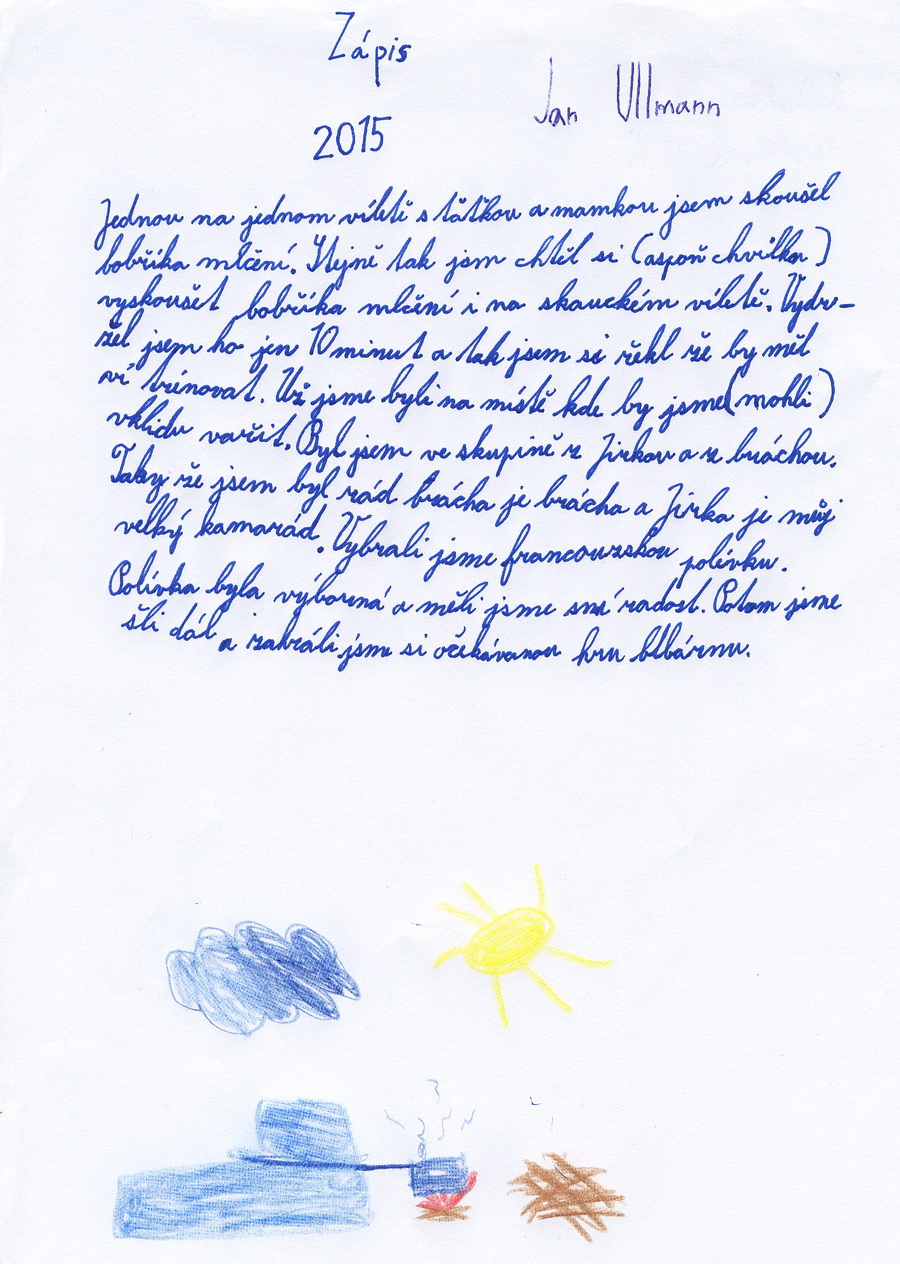 Zápis
Jan Ullmann
2015
Jednou na jednom víletě s táťkou a mamkou jsem skoušel
bobříka mlčení. Stejně tak jsm chtěl si (aspoň chvilku)
vyskoušet bobříka mlčení i na skauckém víletě. Vydr-
žel jsem ho jen 10 minut a tak jsem si řekl že by měl
ví trénovat. Už jsme byli na místě kde by jsme (mohli)
vklidu vařit. Byl jsem ve skupině z Jirkou a z bráchou.
Taky že jsem byl rád brácha je brácha a Jirka je můj
velký kamarád. Vybrali jsme francouzskou polívku.
Polívka byla výborná a měli jsme sní radost. Potom jsme
šli dál a zahráli jsme si očekávanou hru blbárnu.